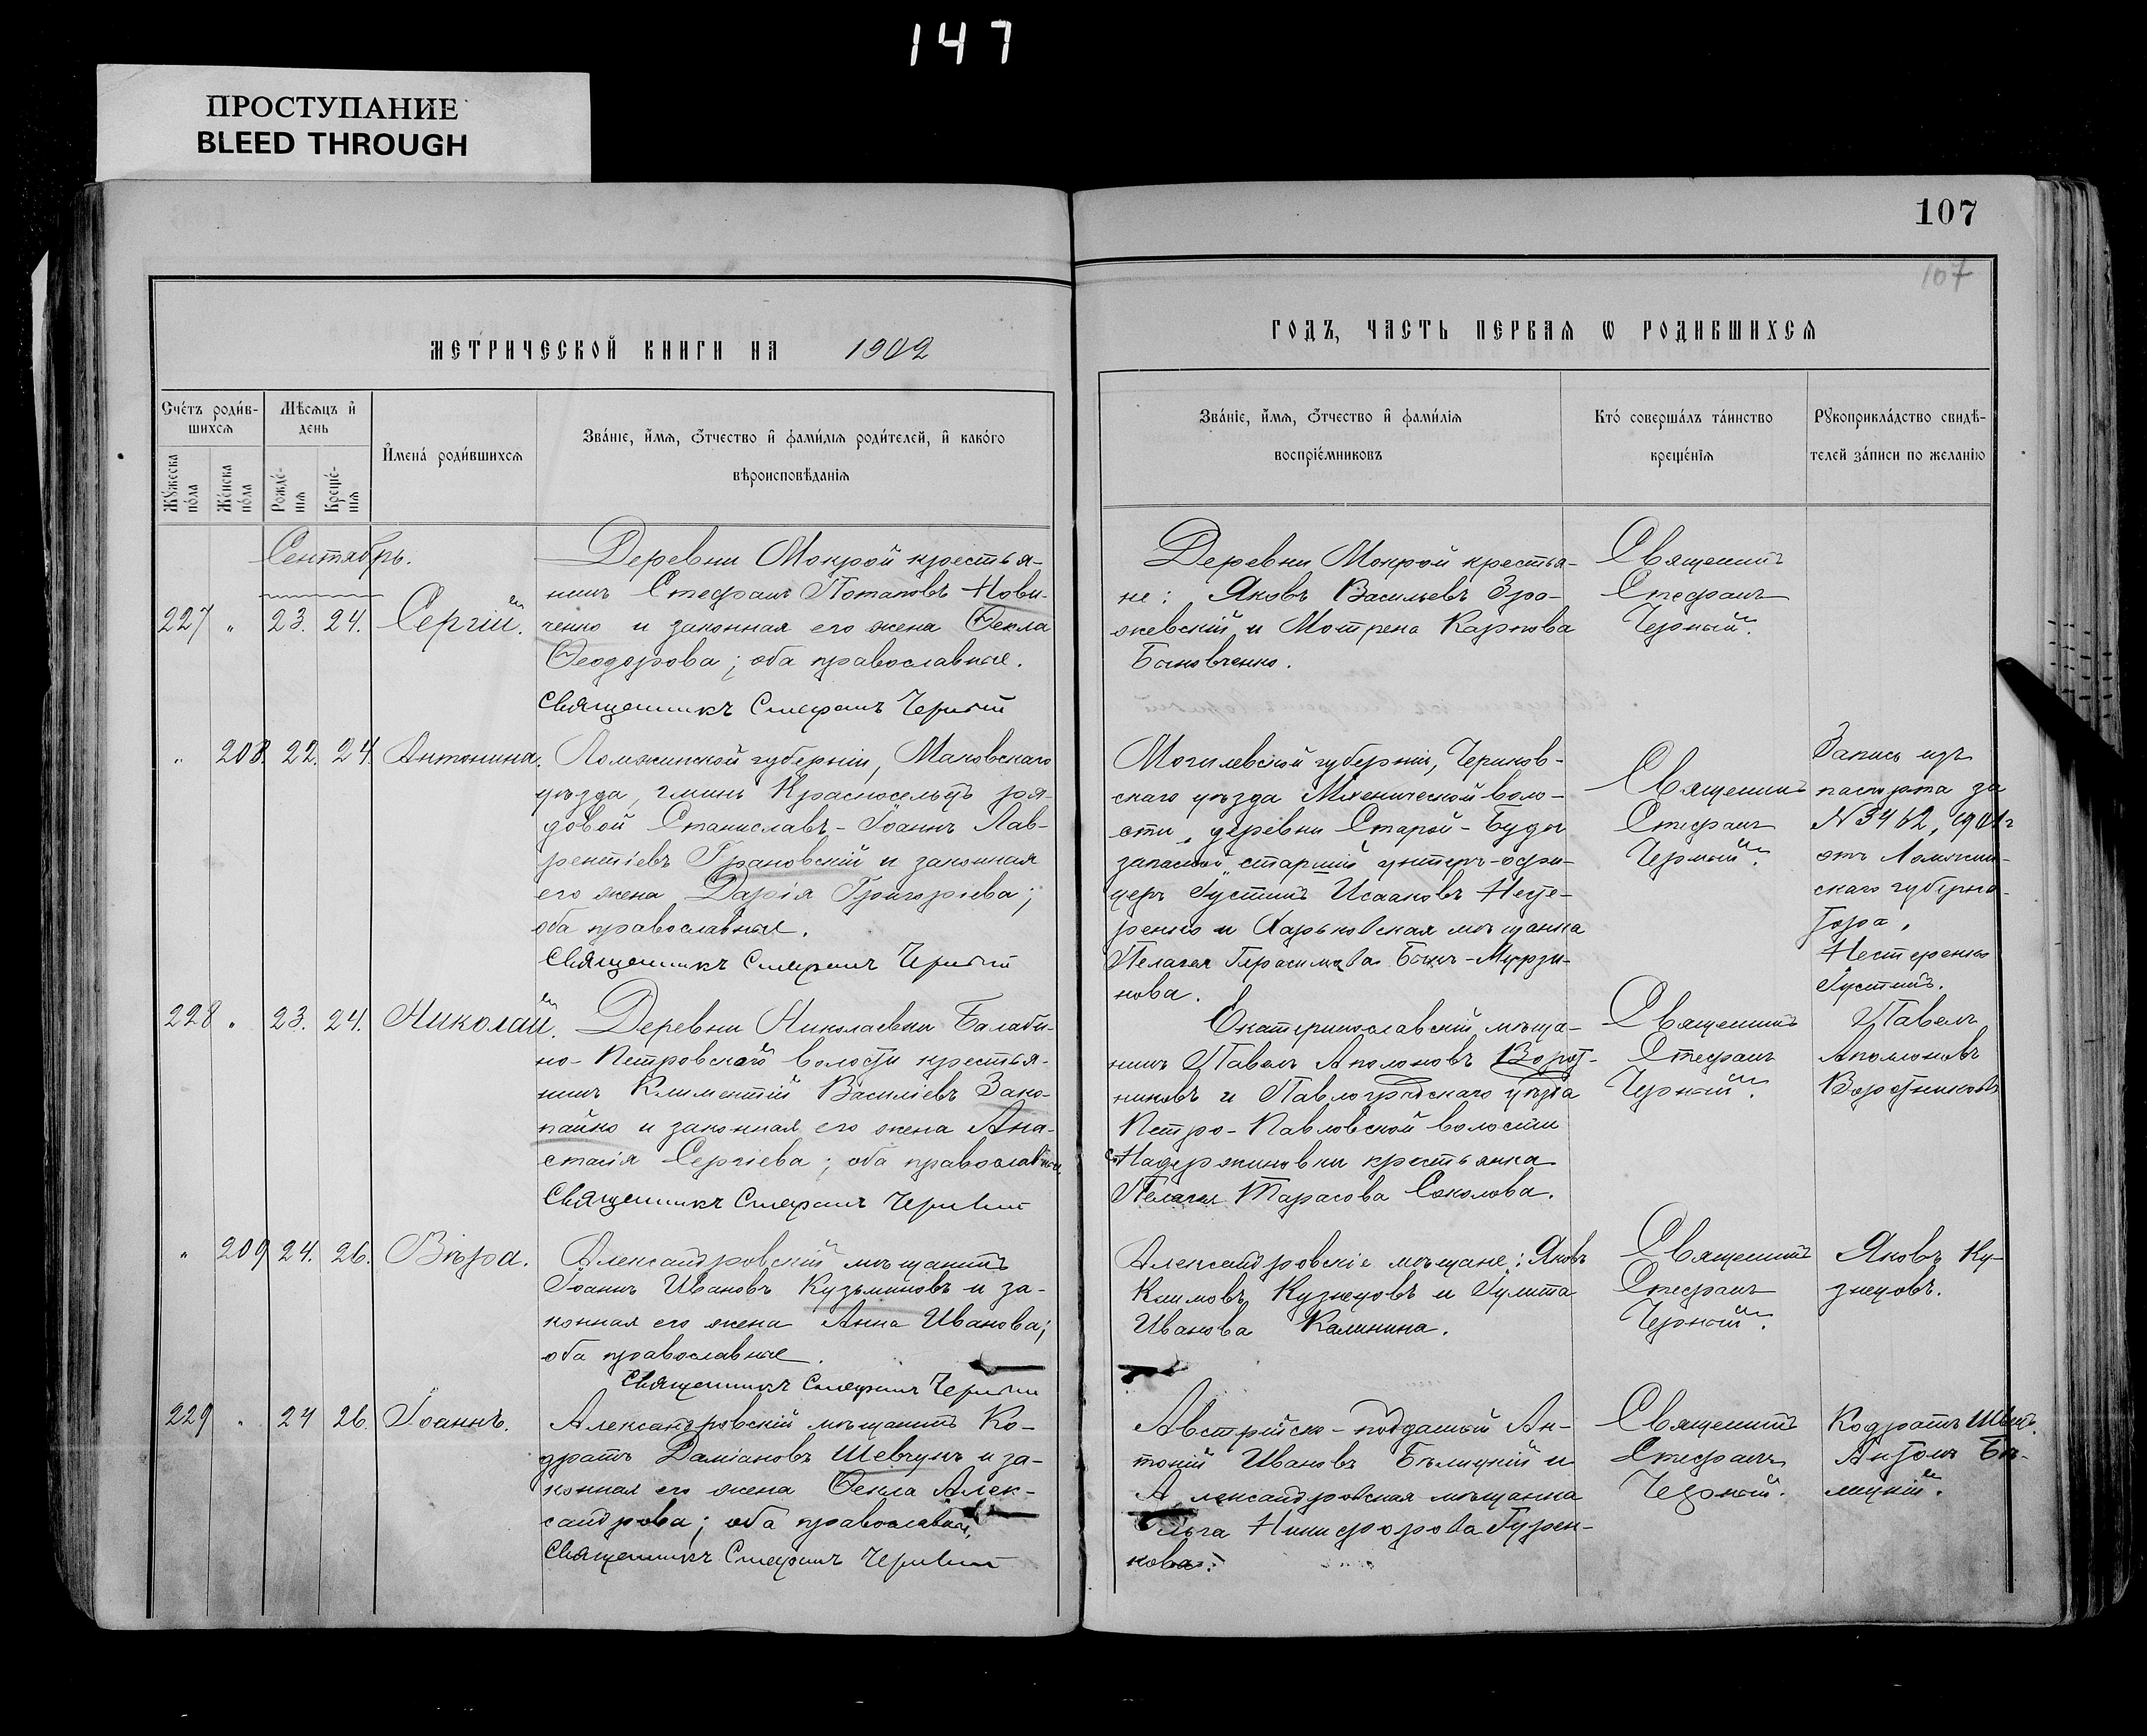 147
ПРОСТУПАНИЕ
BLEED THROUGH
107
107
МЕТРИЧЕСКОЙ КНИГИ НА 1902
ГОДЪ, ЧАСТЬ ПЕРВАЯ Ѡ РОДИВШИХСЯ
Сче́тъ роди́в-
шихся
Мѣсяцъ и҆
день
Мꙋжеска
по́ла
Же́нска
по́ла
Рожде́-
нія
Креще́-
нія
И҆мена́ роди́вшихся
Зва́ніе, и҆́мя, ѻ҆́тчество и҆ фами́лія роди́телей, и҆ како́го
вѣроисповѣ́данія
Зва́ніе, и҆́мя, ѻ҆́тчество и҆ фами́лія
воспріе́мниковъ
Кто̀ соверша́лъ та́инство
креще́нія
Рꙋкоприкла́дство свидѣ́-
телей за́писи по жела́нію
Сентябрь.
227 " 23. 24. Сергій.
Деревни Мокрой крестья-
нинъ Стефанъ Потаповъ Нови-
ченко и законная его жена Ѳекла
Ѳеодорова; оба православные.
Священникъ Стефанъ Черный
Деревни Мокрой крестья-
не: Яковъ Васильевъ
и Мотрена Карпова
Священникъ
Стефанъ
Черный.
" 208 22. 24 Антонина.
Ломжинской губерніи, Маковскаго
уѣзда, гмины Красносельцъ ря-
довой Станиславъ-Іоаннъ Лав-
рентіевъ Грановскій и законная
его жена Дарія Григоріева;
оба православные.
Священникъ Стефанъ Черный
Могилевской губерніи, Чериков-
скаго уѣзда воло-
сти, деревни Старой-Буды
запасной старшій унтеръ-офи-
церъ Іустинъ Исааковъ Несте-
ренко и Харьковская мѣщанка
Пелагея Герасимова
нова.
Священникъ
Стефанъ
Черный.
Запись изъ
паспорта за
N 3462, 1901 г
отъ Ломжин-
скаго губерна-
тора.
Нестеренко
Іустинъ.
228 " 23. 24. Николай.
Деревни Николаевки Балаби-
но-Петровской волости крестья-
нинъ Климентій Василіевъ Зако-
пайко и законная его жена Ана-
стасія Сергіева; оба православные
Священникъ Стефанъ Черный
Екатеринославскій мѣща-
нинъ Павелъ Аполоновъ Ворот-
никовъ и Павлоградскаго уѣзда
Петро-Павловской волости
с. Надержиновки крестьянка
Пелагея Тарасова Соколова.
Священникъ
Стефанъ
Черный.
Павелъ
Аполоновъ
Воротниковъ
" 209 24. 26. Вѣра.
Александровскій мѣщанинъ
Іоаннъ Ивановъ Кузьминовъ и за-
конная его жена Анна Иванова;
оба православные.
Священникъ Стефанъ Черный
Александровскіе мѣщане: Яковъ
Климовъ Кузнецовъ и Іулита
Иванова Калинина.
Священникъ
Стефанъ
Черный.
Яковъ Ку-
знецовъ.
229 " 24 26. Іоаннъ.
Александровскій мѣщанинъ Ко-
дратъ Даміановъ Шевчукъ и за-
конная его жена Ѳекла Алек-
сандрова; оба православные,
Священникъ Стефанъ Черный
Австрійско-подданный Ан-
тоній Ивановъ Бѣлицкій и
Александровская мѣщанка
Ольга Никифорова Гурен-
кова.
Священникъ
Стефанъ
Черный.
Кодратъ
Антонъ Бѣ-
лицкій.